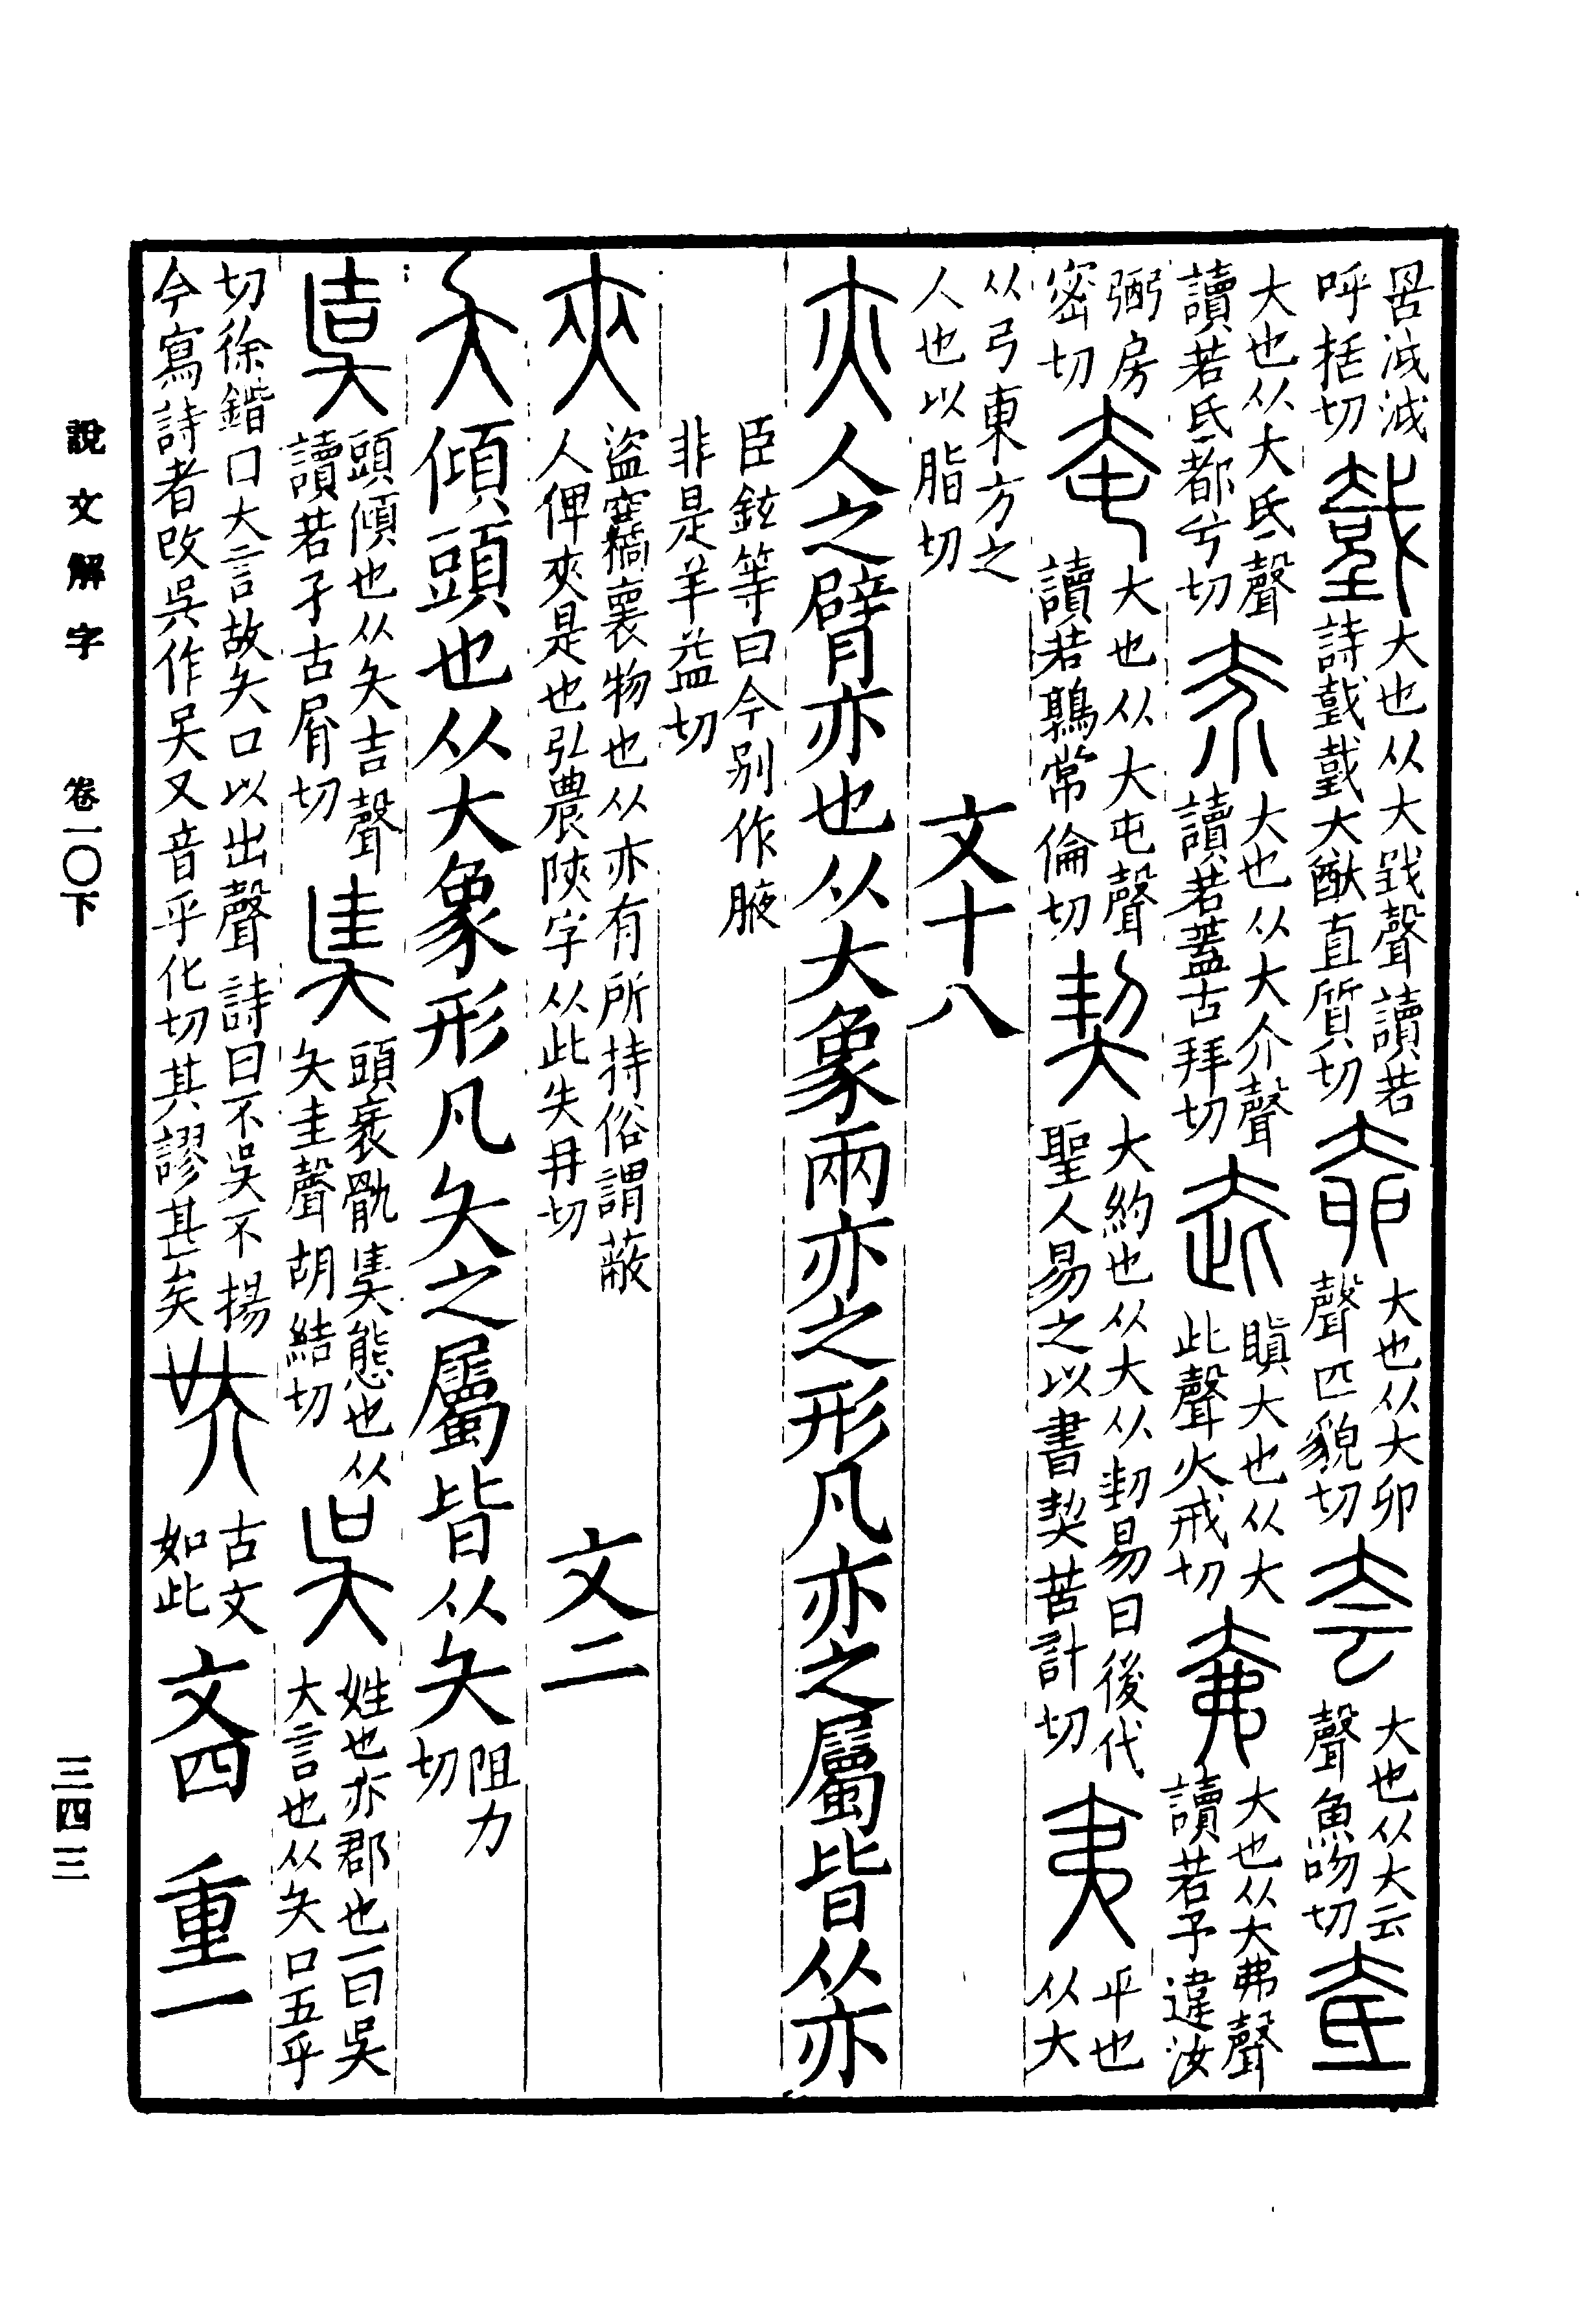 罟泧泧呼括切𢧤大也从大𢧜聲讀若詩𢧤𢧤大猷直質切奅大也从大卯聲匹貌切夽大也从大云聲魚吻切奃
大也从大氐聲讀若氐都兮切大也从大介聲讀若蓋古拜切瞋大也从大此聲火戒切大也从大弗聲讀若予違汝
弼房密切大也从大屯聲讀若鶉常倫切契大約也从大从㓞易曰後代聖人易之以書契苦計切夷平也从大
从弓東方之人也以脂切 文十八
亦人之臂亦也从大象兩亦之形凡亦之屬皆从亦
臣鉉等曰今別作腋非是羊益切
㚒盜竊褱物也从亦有所持俗謂蔽人俾㚒是也弘農陝字从此失冄切 文二
夨傾頭也从大象形凡夨之屬皆从夨阻力切
頭傾也从夨吉聲讀若孑古屑切奊頭衺骫奊態也从夨圭聲胡結切吳姓也亦郡也一曰吳大言也从夨口五乎
切徐鍇曰大言故夨口以出聲詩曰不吳不揚今寫詩者改吳作吴又音乎化切其謬甚矣古文如此文四 重一
說文解字 卷一〇下
三四三